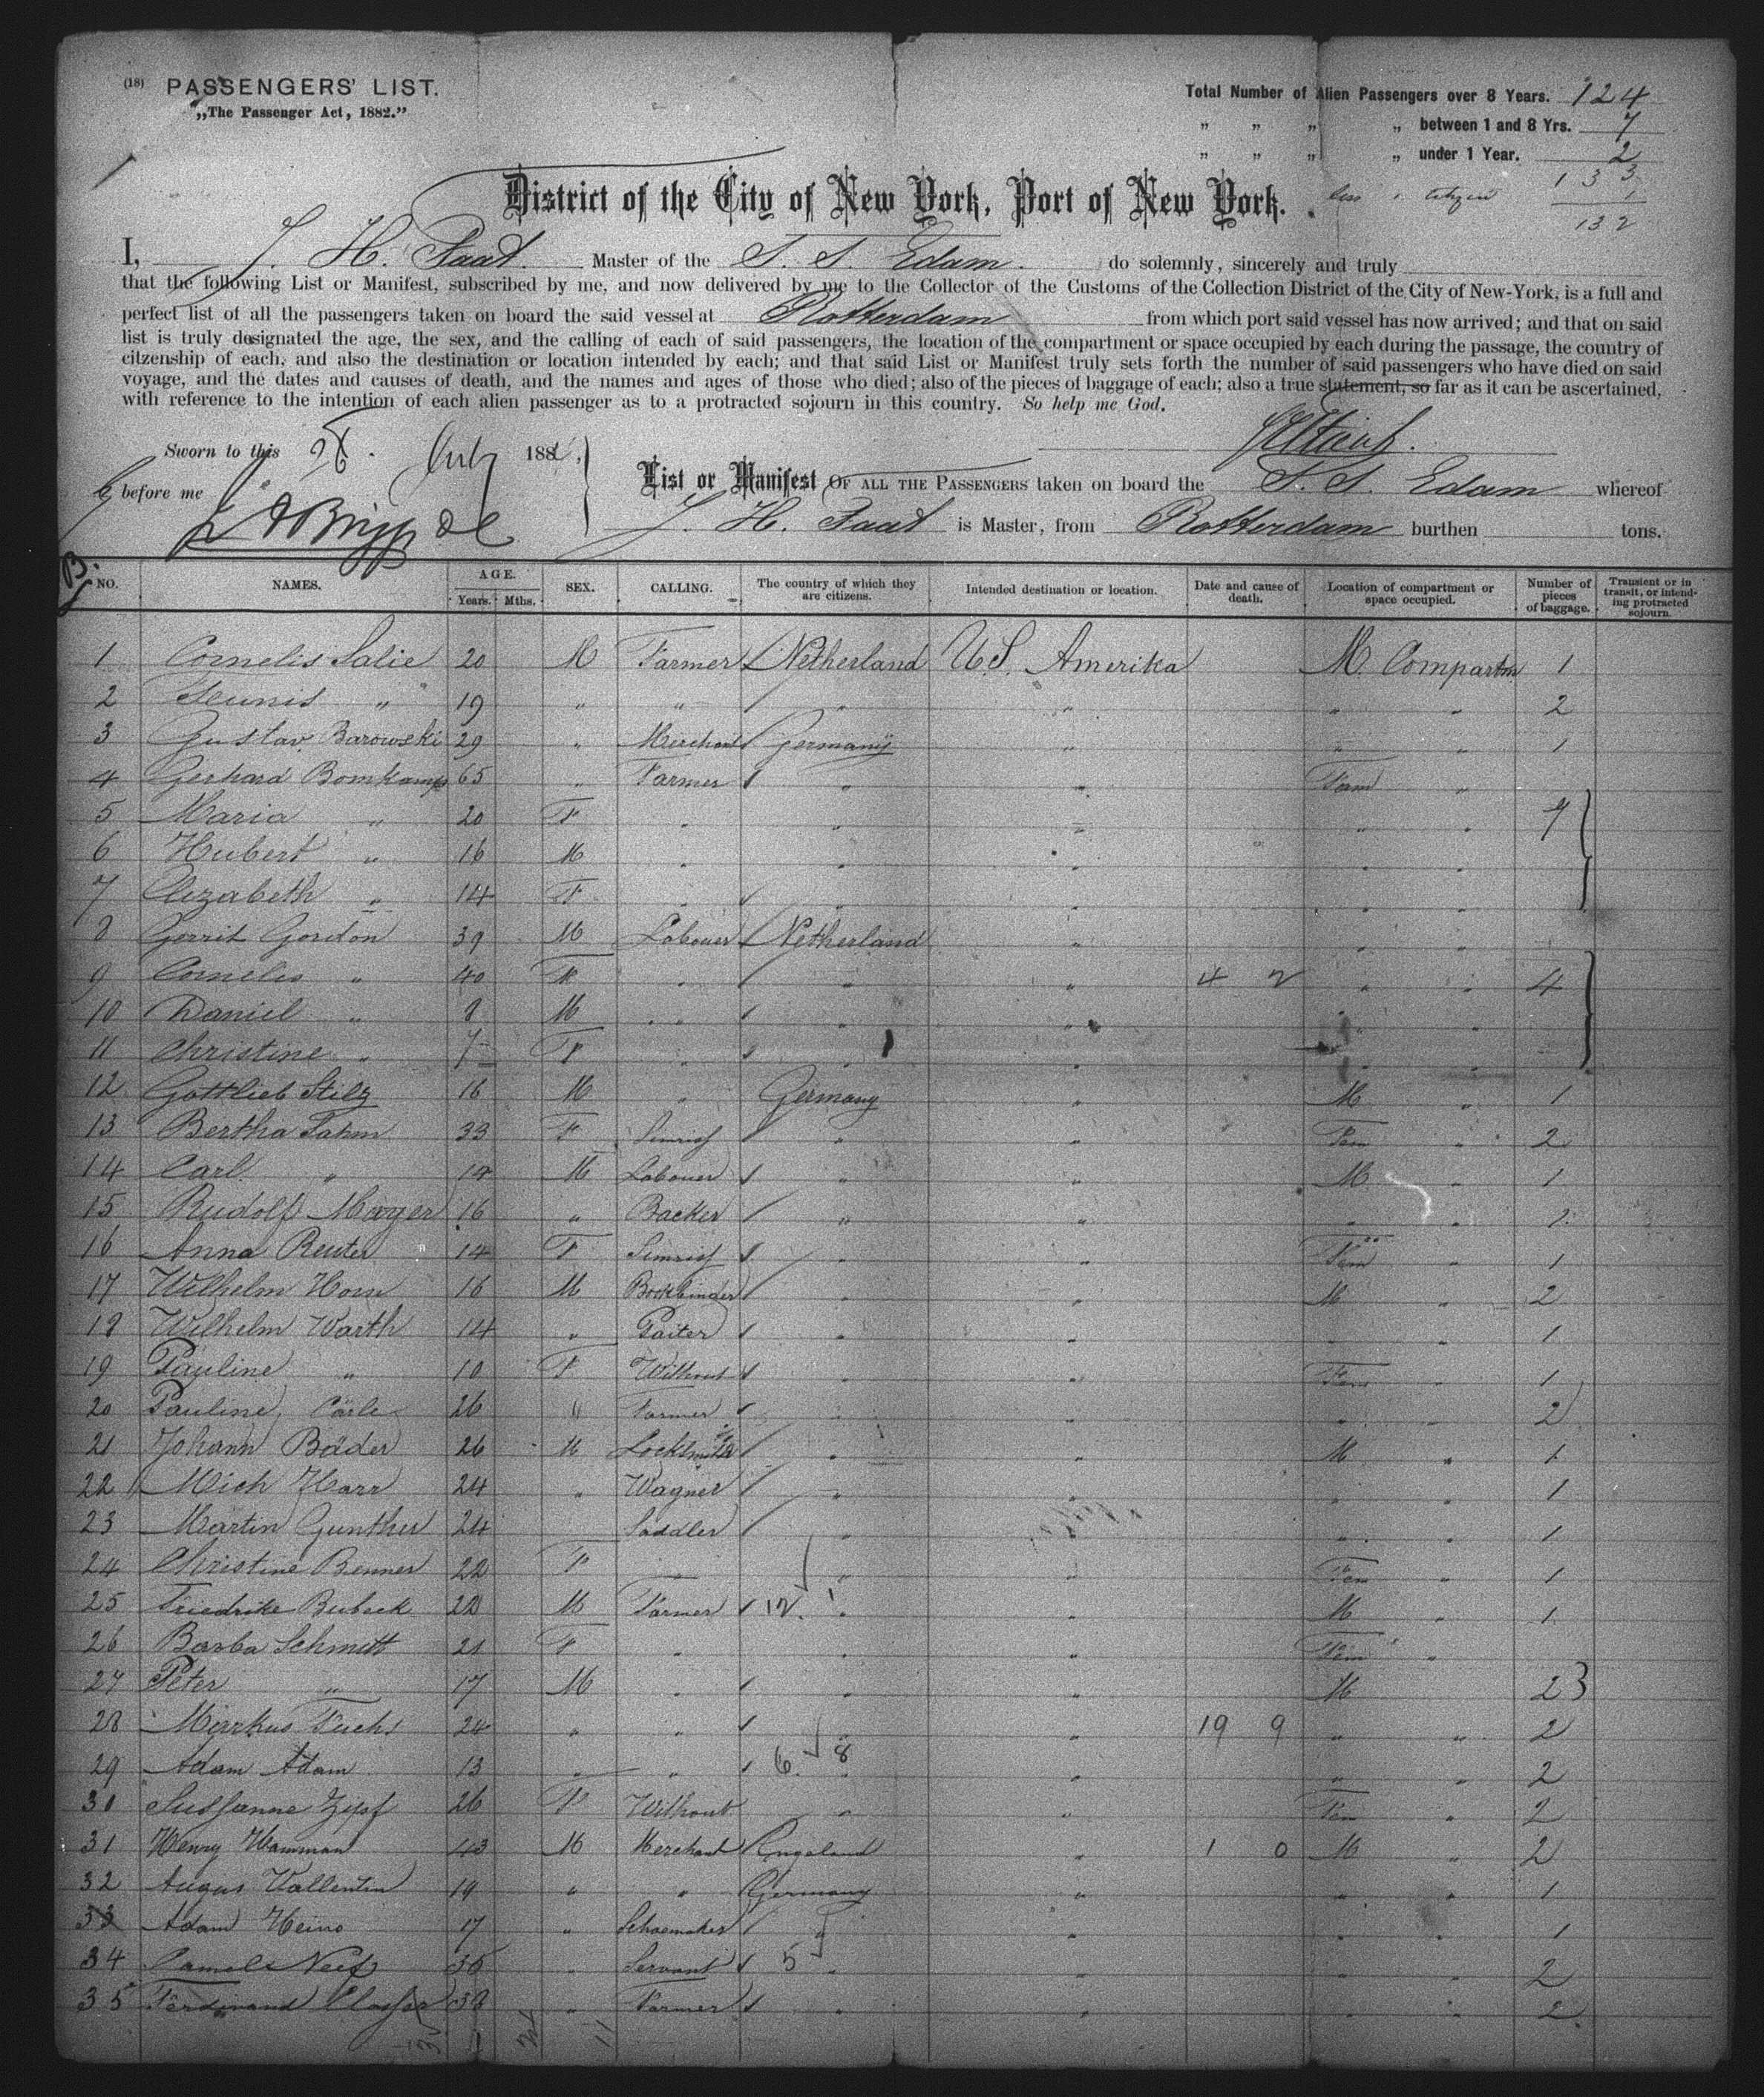 (18) PASSENGERS' LIST.
„The Passenger Act, 1882.”
Total Number of Alien Passengers over 8 Years. 124
„ „ „ „ between 1 and 8 Yrs. 7
„ „ „ „ under 1 Year. 2
133
less 1 citizen 1
132
District of the City of New York, Port of New York.
I, J. H. Taat. Master of the S. S. Edam. do solemnly, sincerely and truly
that the following List or Manifest, subscribed by me, and now delivered by me to the Collector of the Customs of the Collection District of the City of New-York, is a full and
perfect list of all the passengers taken on board the said vessel at Rotterdam from which port said vessel has now arrived; and that on said
list is truly designated the age, the sex, and the calling of each of said passengers, the location of the compartment or space occupied by each during the passage, the country of
citzenship of each, and also the destination or location intended by each; and that said List or Manifest truly sets forth the number of said passengers who have died on said
voyage, and the dates and causes of death, and the names and ages of those who died; also of the pieces of baggage of each; also a true statement, so far as it can be ascertained,
with reference to the intention of each alien passenger as to a protracted sojourn in this country. So help me God.
Sworn to this 26. July 188
before me
List or Manifest OF ALL THE PASSENGERS taken on board the S. S. Edam whereof
J. H. Taat is Master, from Rotterdam burthen tons.
NO. NAMES. AGE. Years. Mths. SEX. CALLING. The country of which they are citizens. Intended destination or location. Date and cause of death. Location of compartment or space occupied. Number of pieces of baggage. Transient or in transit, or intending protracted sojourn.
1 Cornelis Salie 20 M Farmer Netherland U.S. Amerika M. Compartm 1
2 Teunis „ 19 „ „ „ „ „ „ 2
3 Gustav Barowski 29 „ Merchant Germany „ „ „ 1
4 Gerhard Bomkamp 65 „ Farmer „ „ Fam „
5 Maria „ 20 F „ „ „ „ „ 7
6 Hubert „ 16 M „ „ „ „ „
7 Elezabeth „ 14 F „ „ „ „ „
8 Gerrit Gordon 39 M Labouer Netherland „ „ „
9 Cornelis „ 40 F „ „ „ 4 2 „ „ 4
10 Daniel „ 8 M „ „ „ „ „
11 Christine „ 7 F „ „ „ „ „
12 Gottlieb Stilz 16 M „ Germany „ M „ 1
13 Bertha Sahm 33 F „ „ Fem „ 2
14 Carl „ 14 M Labouer „ „ M „ 1
15 Rudolf Mayer 16 „ Backer „ „ „ „ 1
16 Anna Reuter 14 F „ „ Fem „ 1
17 Wilhelm Horn 16 M Bookbinder „ „ M „ 2
18 Wilhelm Warth 14 „ Paiter „ „ „ „ 1
19 Pauline „ 10 F Without „ „ Fem „ 1
20 Pauline Cärle 26 „ Farmer „ „ „ „ 2
21 Johann Bäder 26 M Locksmith „ „ M „ 1
22 Mich Harr 24 „ Wagner „ „ „ „ 1
23 Martin Gunther 24 Saddler „ „ „ „ 1
24 Christine Benner 22 F „ „ Fem „ 1
25 Friedrike Bubeck 28 M Farmer 12. „ „ M „ 1
26 Barba Schmitt 21 F „ „ „ Fem „
27 Peter „ 17 M „ „ „ M 2
28 Markus Fuchs 24 „ „ „ „ 19 9 „ „ 2
29 Adam Adam 13 „ „ 6. 8 „ „ „ „ 2
30 Sussanne Zipf 26 F Without „ „ Fem „ 2
31 Henry Hamman 43 M Merchant Engeland „ 1 0 M „ 2
32 Augus Vallentin 19 „ „ Germany „ „ „ 1
33 Adam Heino 17 „ Schoemaker „ „ „ „ 1
34 Neef 36 „ Servant 5 „ „ „ „ 2
35 Ferdinand 38 „ Farmer „ „ „ „ 2